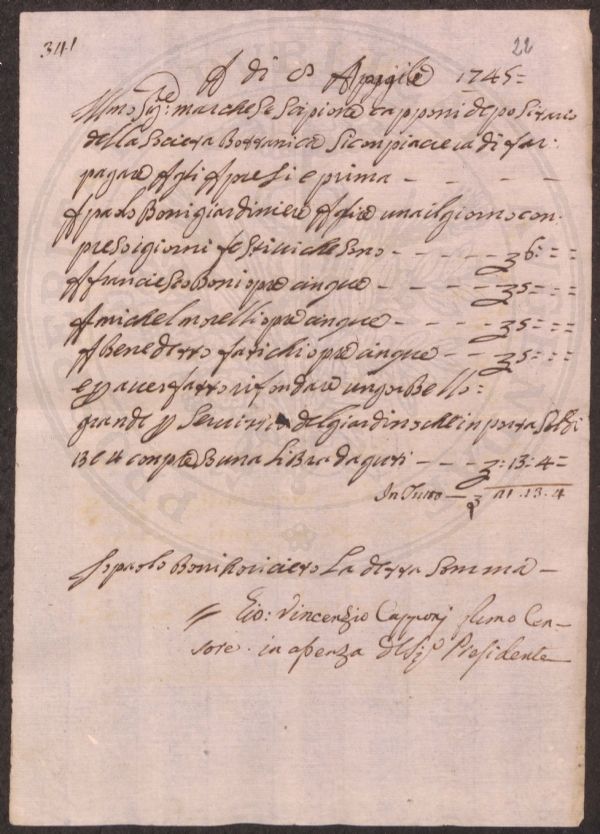 341
22
A di 8 Aprile 1745 =
Illmo Sigre: marchese Scipione Capponi depositario
della Societa Bottanica si conpiacera di far:
pagare Agli Apresi e prima - - - -
A paolo Boni giardiniere Lire una il giorno con:
preso i giorni festivi che sono - - - - - 6: = =
A francesco Boni opre cinque - - - - 5 = : =
A michel morelli opre cinque - - - - 5 = : =
A Benedetto farichi opre cinque - - 5 = : =
e p aver fatto rifondare un gorbello =
grande p servizio del giardino che inporta soldi
13 e 4 conpreso una Libra d aguti - - - : 13: 4 =
In Tutto — 21 . 13 . 4
Io paolo Boni o riceuto La detta Somma —
Gio: Vincenzio Capponj primo Cen-
sore. in assenza del Sig:e Presidente